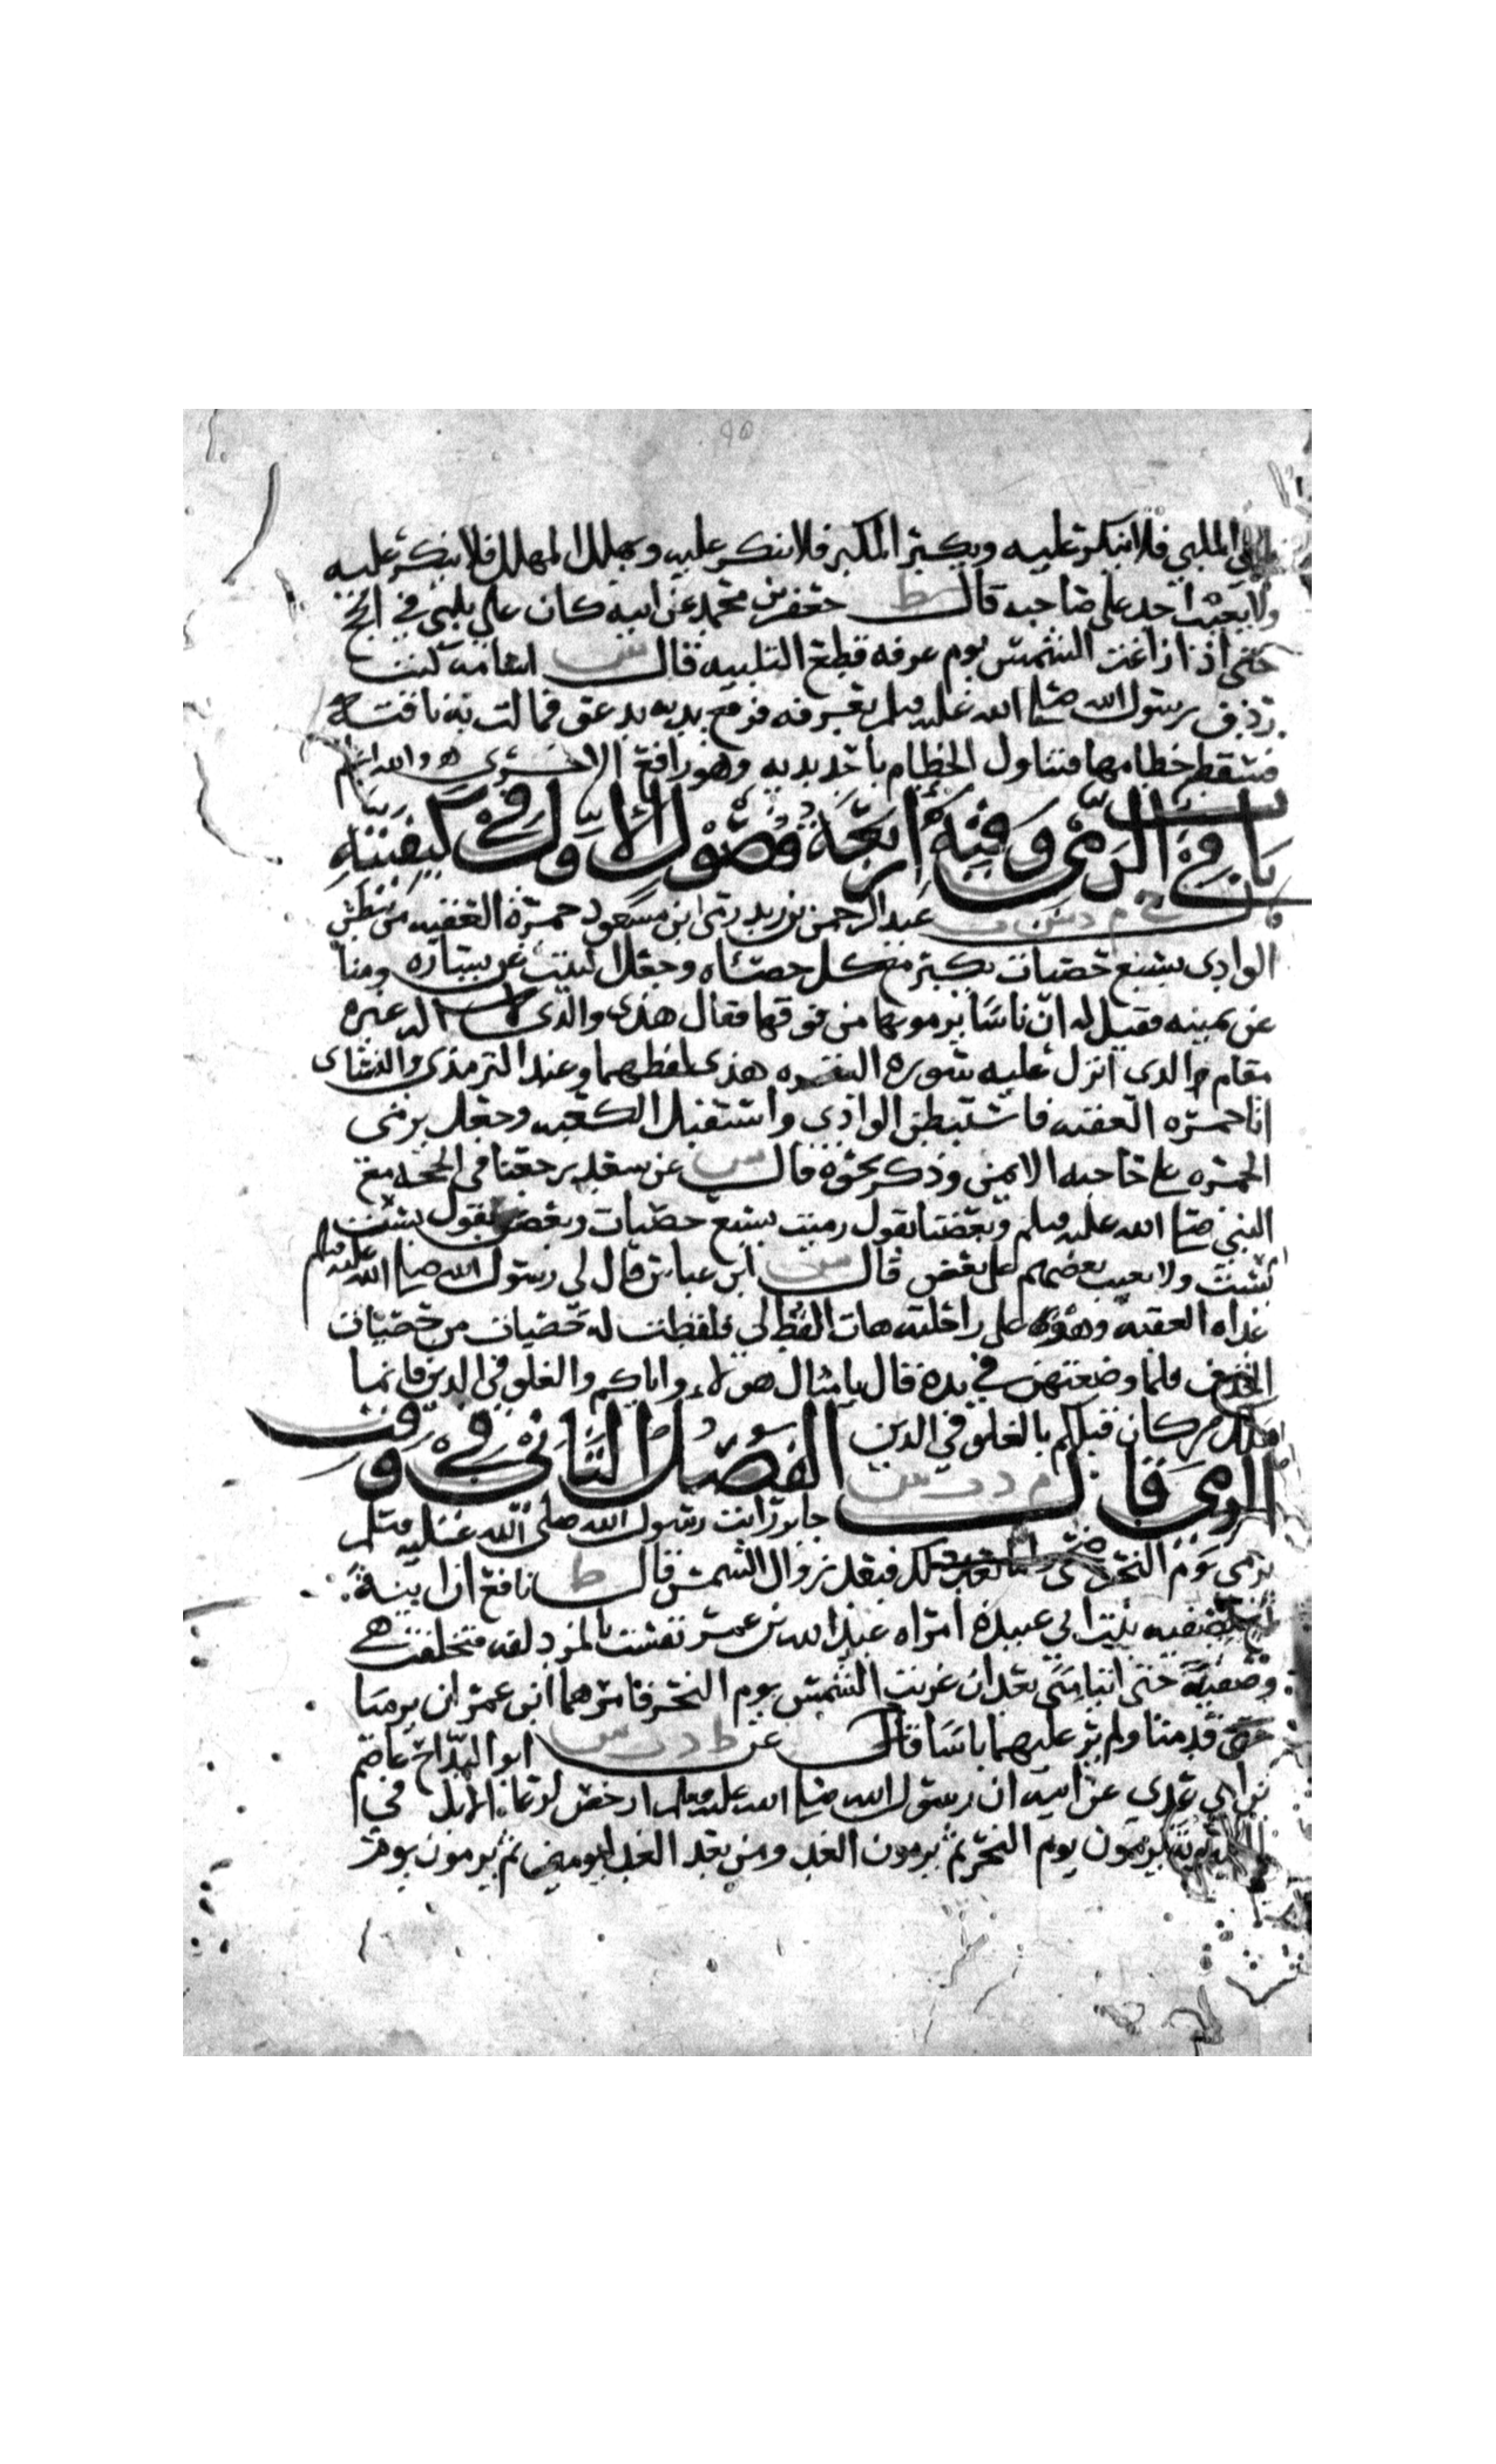 ٩٥
الملبي فلا ينكر عليه ويكبر المكبر فلا ينكر عليه ويهلل المهلل فلا ينكر عليه
ولا يعيب احد على صاحبه قال ط جعفر بن محمد عن ابيه كان علي يلبي في الحج
حتى اذا زاغت الشمس يوم عرفه قطع التلبيه قال س اسامه كنت
ردف رسول الله صلى الله عليه وسلم بعرفه فرفع يديه يدعو فمالت به ناقته
فسقط خطامها فتناول الخطام باحد يديه وهو رافع الاخرى والله اعلم
باب في الرمي وفيه اربعة فصول الاول في كيفيته
قال خ م د س ت عبد الرحمن بن زيد رمى ابن مسعود جمرة العقبه من بطن
الوادي بسبع حصيات يكبر مع كل حصاه وجعل البيت عن يساره ومنا
عن يمينه فقيل له ان ناسا يرمونها من فوقها فقال هذي والذي لا اله غيره
مقام الذي انزل عليه سوره البقره هذي لفظهما وعند الترمذي والنساى
اتا جمره العقبه فاستبطن الوادي واستقبل الكعبه وجعل يرمي
الجمره على حاجبه الايمن وذكر نحوه قال س عن سعد رجعنا في الحجه مع
النبي صلى الله عليه وسلم وبعضنا يقول رميت بسبع حصيات وبعض يقول بست
بست ولا يعيب بعضهم على بعض قال س ابن عباس قال لي رسول الله صلى الله عليه وسلم
غداه العقبه وهو على راحلته هات القط لي فلقطت له حصيات من حصيات
الخذف فلما وضعتهن في يده قال بامثال هولاء واياكم والغلو في الدين فانما
هلك من كان قبلكم بالغلو في الدين الفصل الثاني في وقت
الرمي قال م د ت س جابر رايت رسول الله صلى الله عليه وسلم
يرمي يوم النحر ضحى بعد ذلك فبعد زوال الشمس قال ط نافع ان ابنة
لصفيه بنت ابي عبيدة امراه عبد الله بن عمر نفست بالمزدلفه فتخلفت هي
وصفية حتى اتيا منى بعد ان غربت الشمس يوم النحر فامرهما ابن عمر ان يرميا
قدمتا ولم ير عليهما باسا قال عن ط د ت س ابو البداح عاصم
بن عدي عن ابيه ان رسول الله صلى الله عليه وسلم ارخص لرعاة الابل في
البيتوتة يرمون يوم النحر ثم يرمون الغد ومن بعد الغد ليومين ثم يرمون يوم